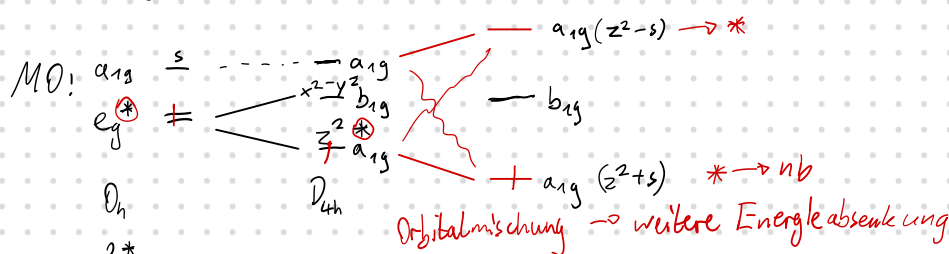 a1g (z²-s) → *
s
MO! a1g a1g
x²-y²
eg* b1g b1g
z² *
a1g a1g (z²+s) * → nb
Oh D4h
Orbitalmischung → weitere Energieabsenkung